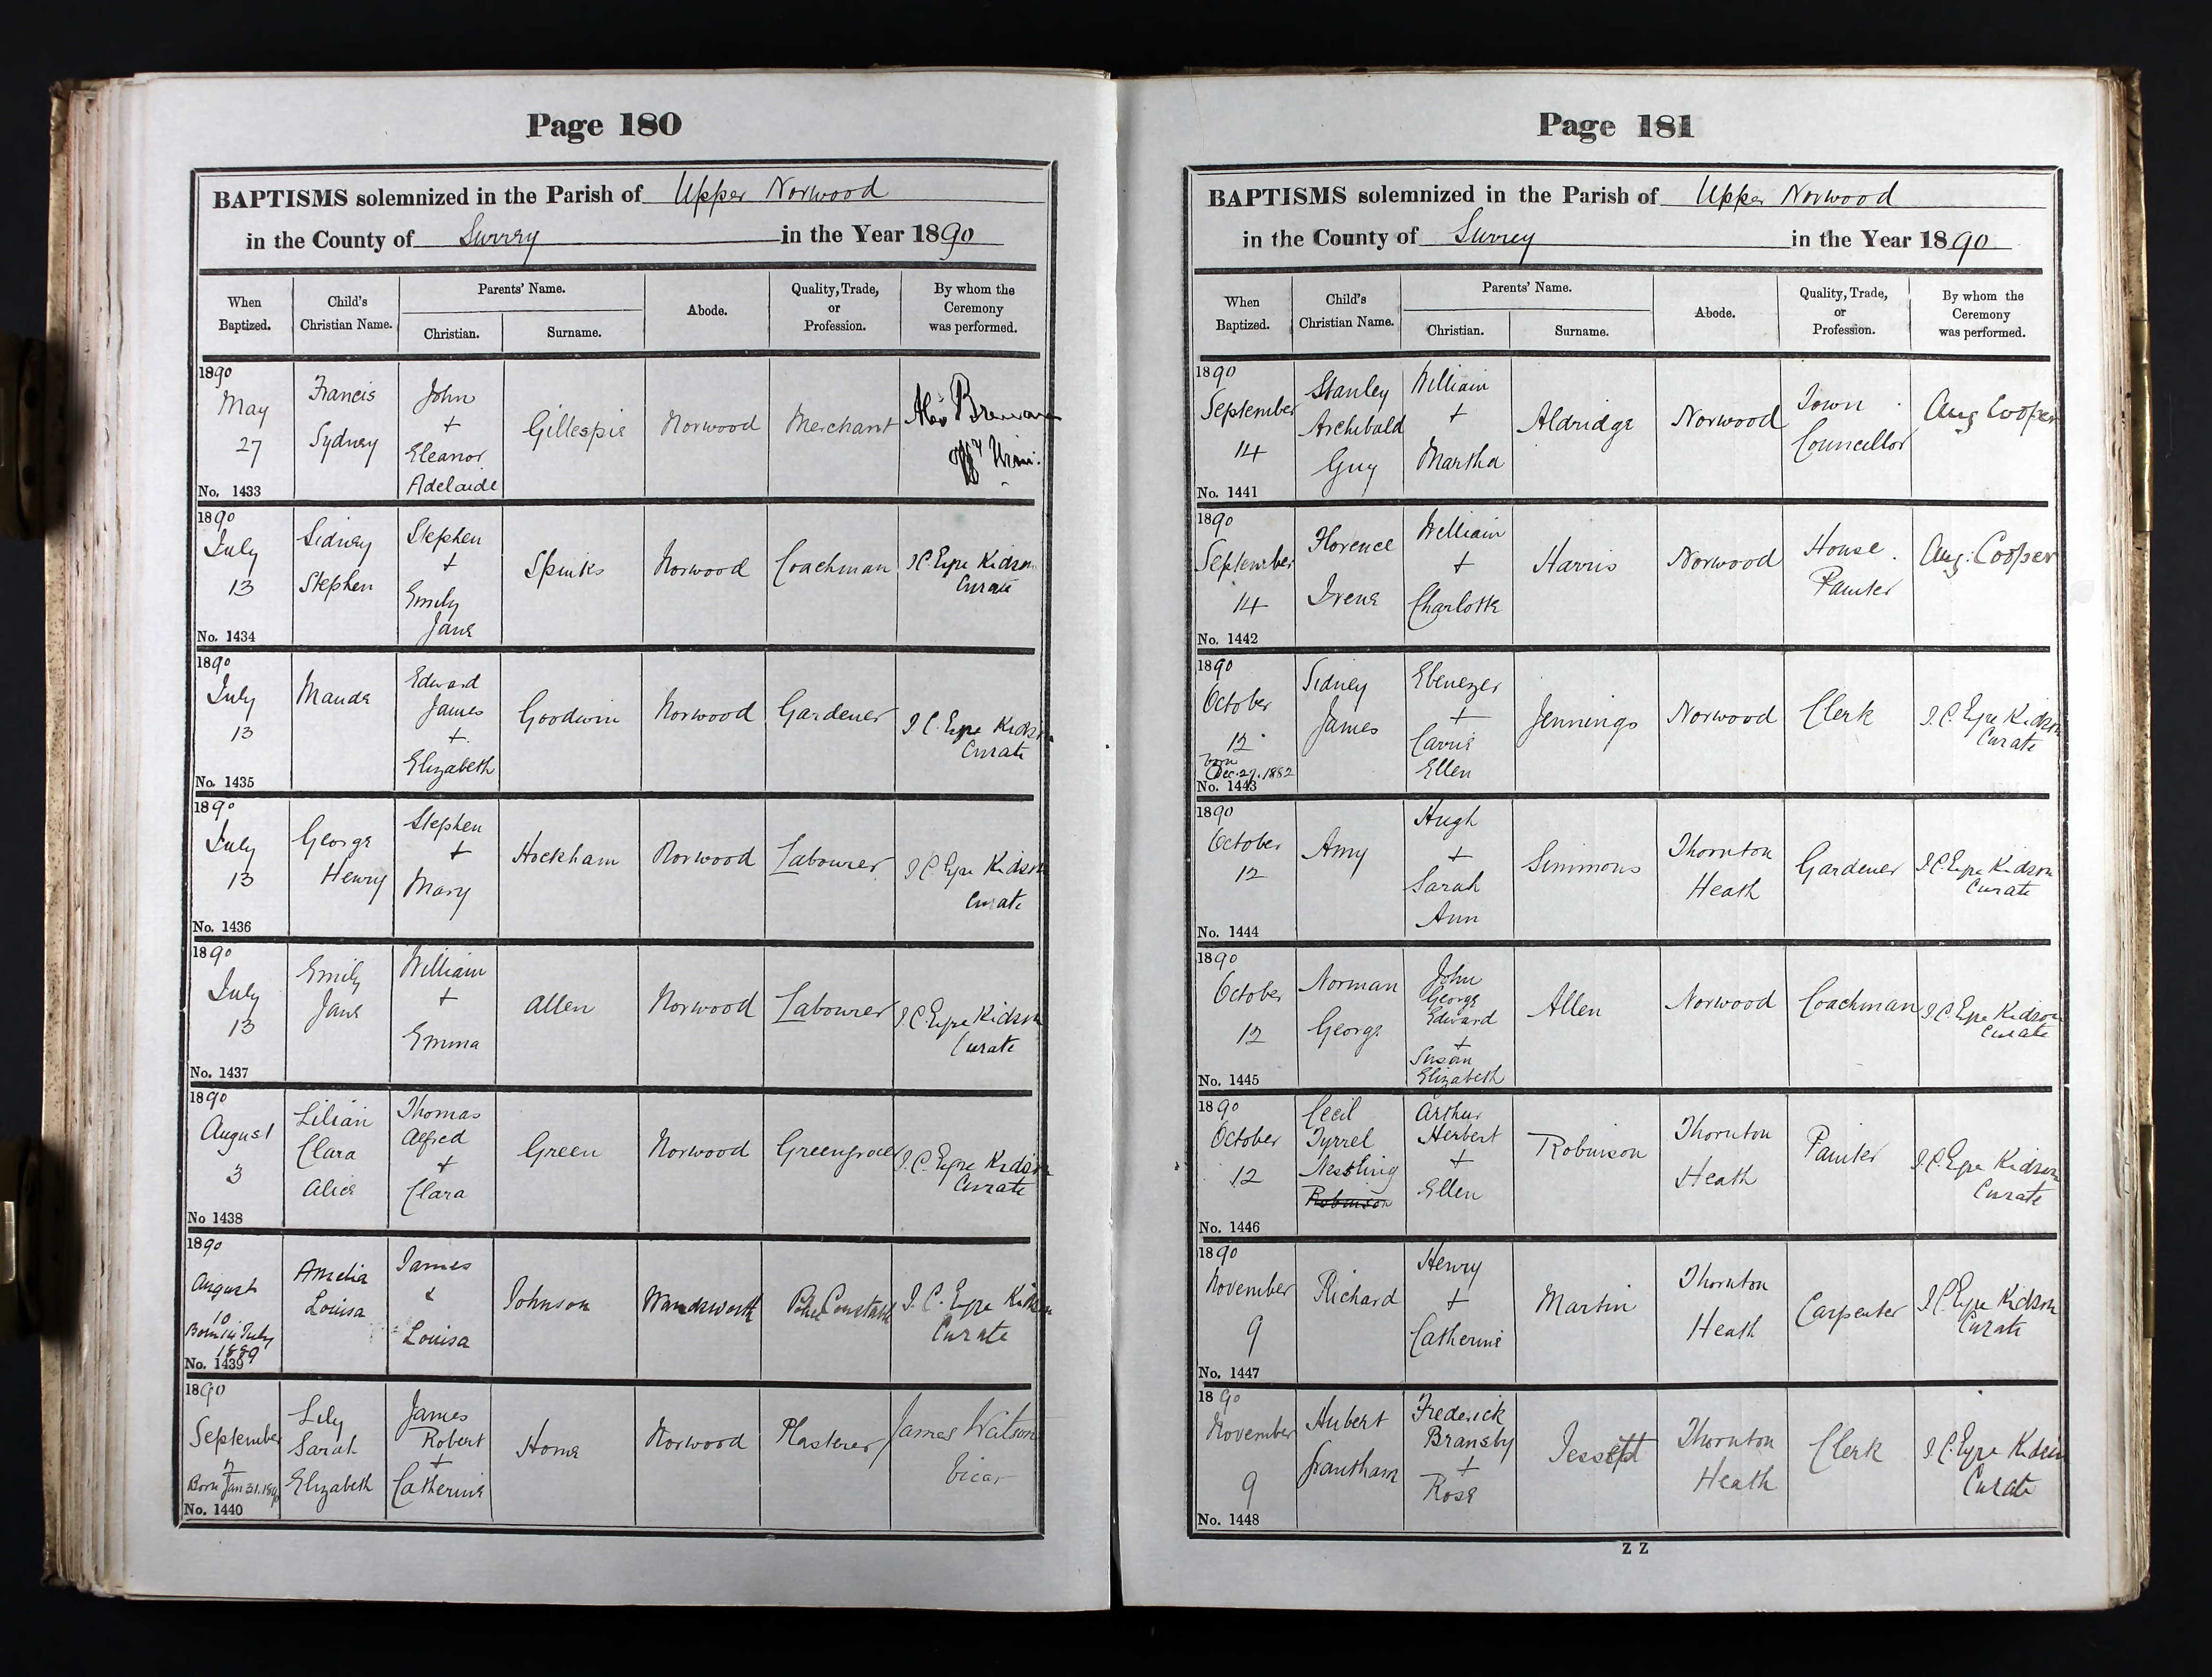 Page 180
BAPTISMS solemnized in the Parish of Upper Norwood
in the County of Surrey in the Year 1890
When Baptized.
Child's Christian Name.
Parents' Name.
Christian.
Surname.
Abode.
Quality, Trade, or Profession.
By whom the Ceremony was performed.
1890
May
27
No. 1433
Francis
Sydney
John
+
Eleanor
Adelaide
Gillespie
Norwood
Merchant
1890
July
13
No. 1434
Sidney
Stephen
Stephen
+
Emily
Jane
Spinks
Norwood
Coachman
J C. Eyre Kidson
Curate
1890
July
13
No. 1435
Maude
Edward
James
+
Elizabeth
Goodwin
Norwood
Gardener
J C. Eyre Kidson
Curate
1890
July
13
No. 1436
George
Henry
Stephen
+
Mary
Hockham
Norwood
Labourer
J C. Eyre Kidson
Curate
1890
July
13
No. 1437
Emily
Jane
William
+
Emma
Allen
Norwood
Labourer
J. C. Eyre Kidson
Curate
1890
August
3
No 1438
Lilian
Clara
Alice
Thomas
Alfred
+
Clara
Green
Norwood
Greengrocer
J. C. Eyre Kidson
Curate
1890
August
10
Born 14 July
1889
No. 1439
Amelia
Louisa
James
&
Louisa
Johnson
Wandsworth
Police Constable
J. C. Eyre Kidson
Curate
1890
September
7
Born Jan 31. 1890
No. 1440
Lily
Sarah
Elizabeth
James
Robert
+
Catherine
Home
Norwood
Plasterer
James Watson
Vicar
Page 181
BAPTISMS solemnized in the Parish of Upper Norwood
in the County of Surrey in the Year 1890
When Baptized.
Child's Christian Name.
Parents' Name.
Christian.
Surname.
Abode.
Quality, Trade, or Profession.
By whom the Ceremony was performed.
1890
September
14
No. 1441
Stanley
Archibald
Guy
William
+
Martha
Aldridge
Norwood
Town
Councillor
Aug Cooper
1890
September
14
No. 1442
Florence
Irene
William
+
Charlotte
Harris
Norwood
House
Painter
Aug: Cooper
1890
October
12
born
Dec. 29. 1882
No. 1443
Sidney
James
Ebenezer
+
Carrie
Ellen
Jennings
Norwood
Clerk
J. C. Eyre Kidson
Curate
1890
October
12
No. 1444
Amy
Hugh
+
Sarah
Ann
Simmons
Thornton
Heath
Gardener
J. C. Eyre Kidson
Curate
1890
October
12
No. 1445
Norman
George
John
George
Edward
+
Susan
Elizabeth
Allen
Norwood
Coachman
J. C. Eyre Kidson
Curate
1890
October
12
No. 1446
Cecil
Tyrrel
Nessling
Robinson
Arthur
Herbert
+
Ellen
Robinson
Thornton
Heath
Painter
J. C. Eyre Kidson
Curate
1890
November
9
No. 1447
Richard
Henry
+
Catherine
Martin
Thornton
Heath
Carpenter
J. C. Eyre Kidson
Curate
1890
November
9
No. 1448
Hubert
Grantham
Frederick
Bransby
+
Rose
Jessett
Thornton
Heath
Clerk
J. C. Eyre Kidson
Curate
Z Z